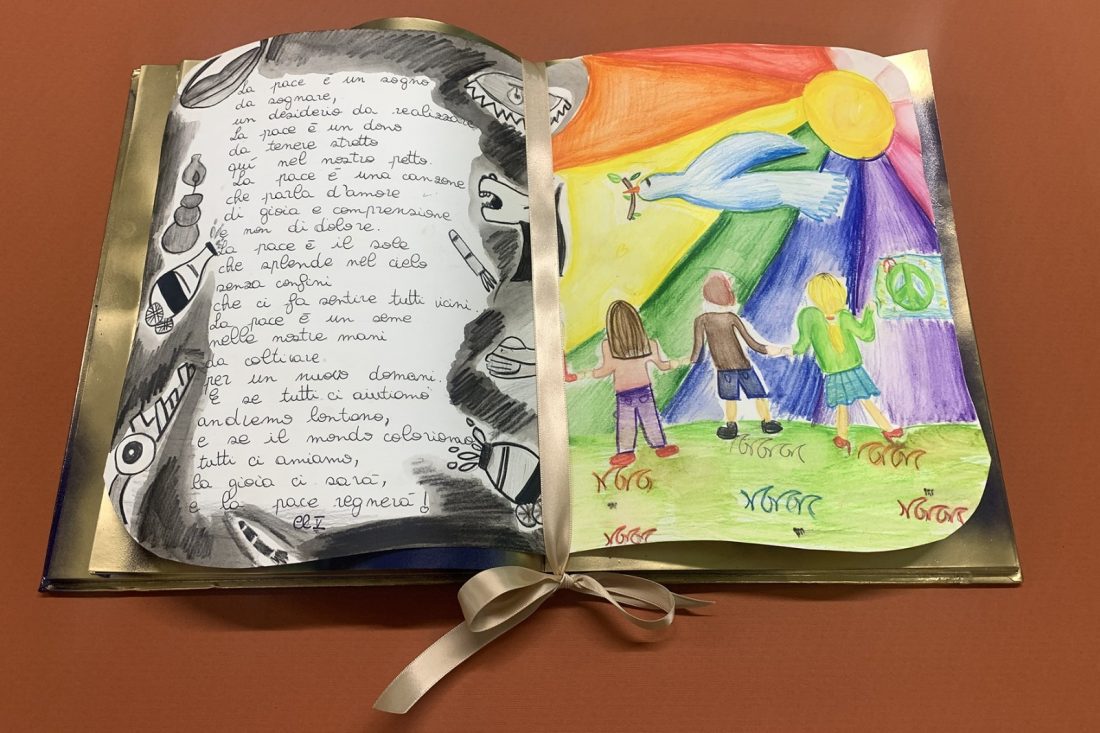 La pace è un sogno
da sognare,
un desiderio da realizzare
La pace è un dono
da tenere stretto
quí nel nostro petto.
La pace è una canzone
che parla d'amore
di gioia e comprensione
e non di dolore.
La pace è il sole
che splende nel cielo
senza confini
che ci fa sentire tutti vicini.
La pace è un seme
nelle nostre mani
da coltivare
per un nuovo domani.
E se tutti ci aiutiamo
andremo lontano,
e se il mondo coloriamo
tutti ci amiamo,
la gioia ci sarà,
e la pace regnerà!
Cl V